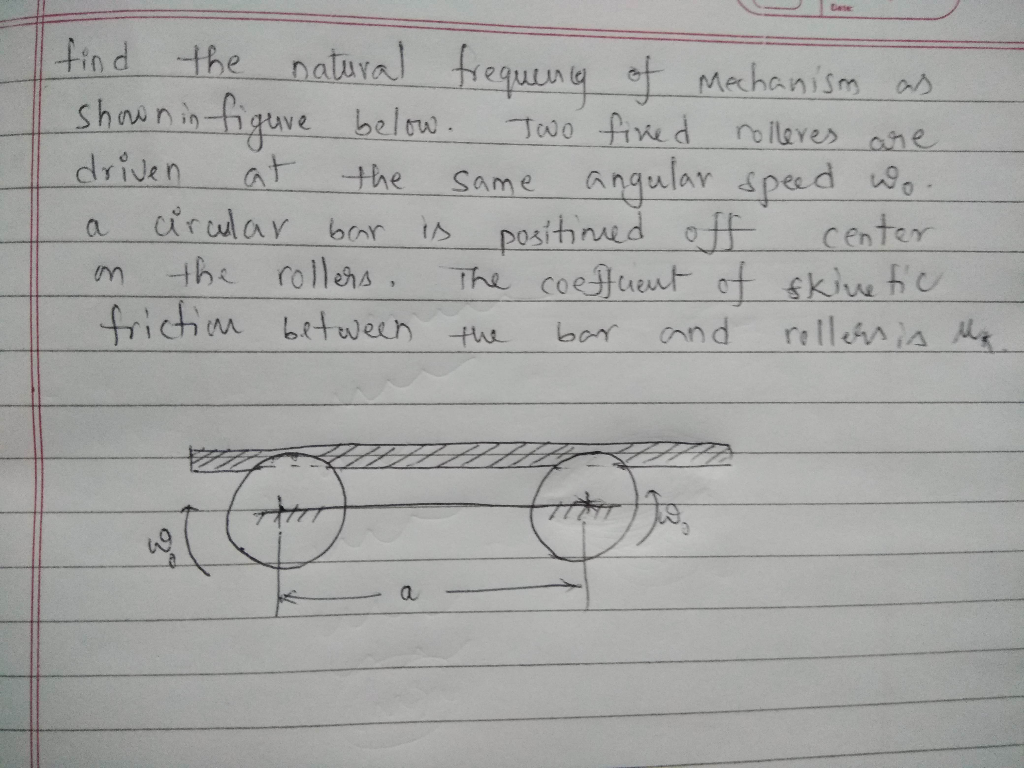 Date:
find the natural frequency of Mechanism as
shown in figure below. Two fixed rolleres are
driven at the same angular speed ω₀.
a circular bar is positined off center
on the rollers. The coefficient of skinetic
friction between the bar and rollers is μₖ.
ω₀ ω₀
a